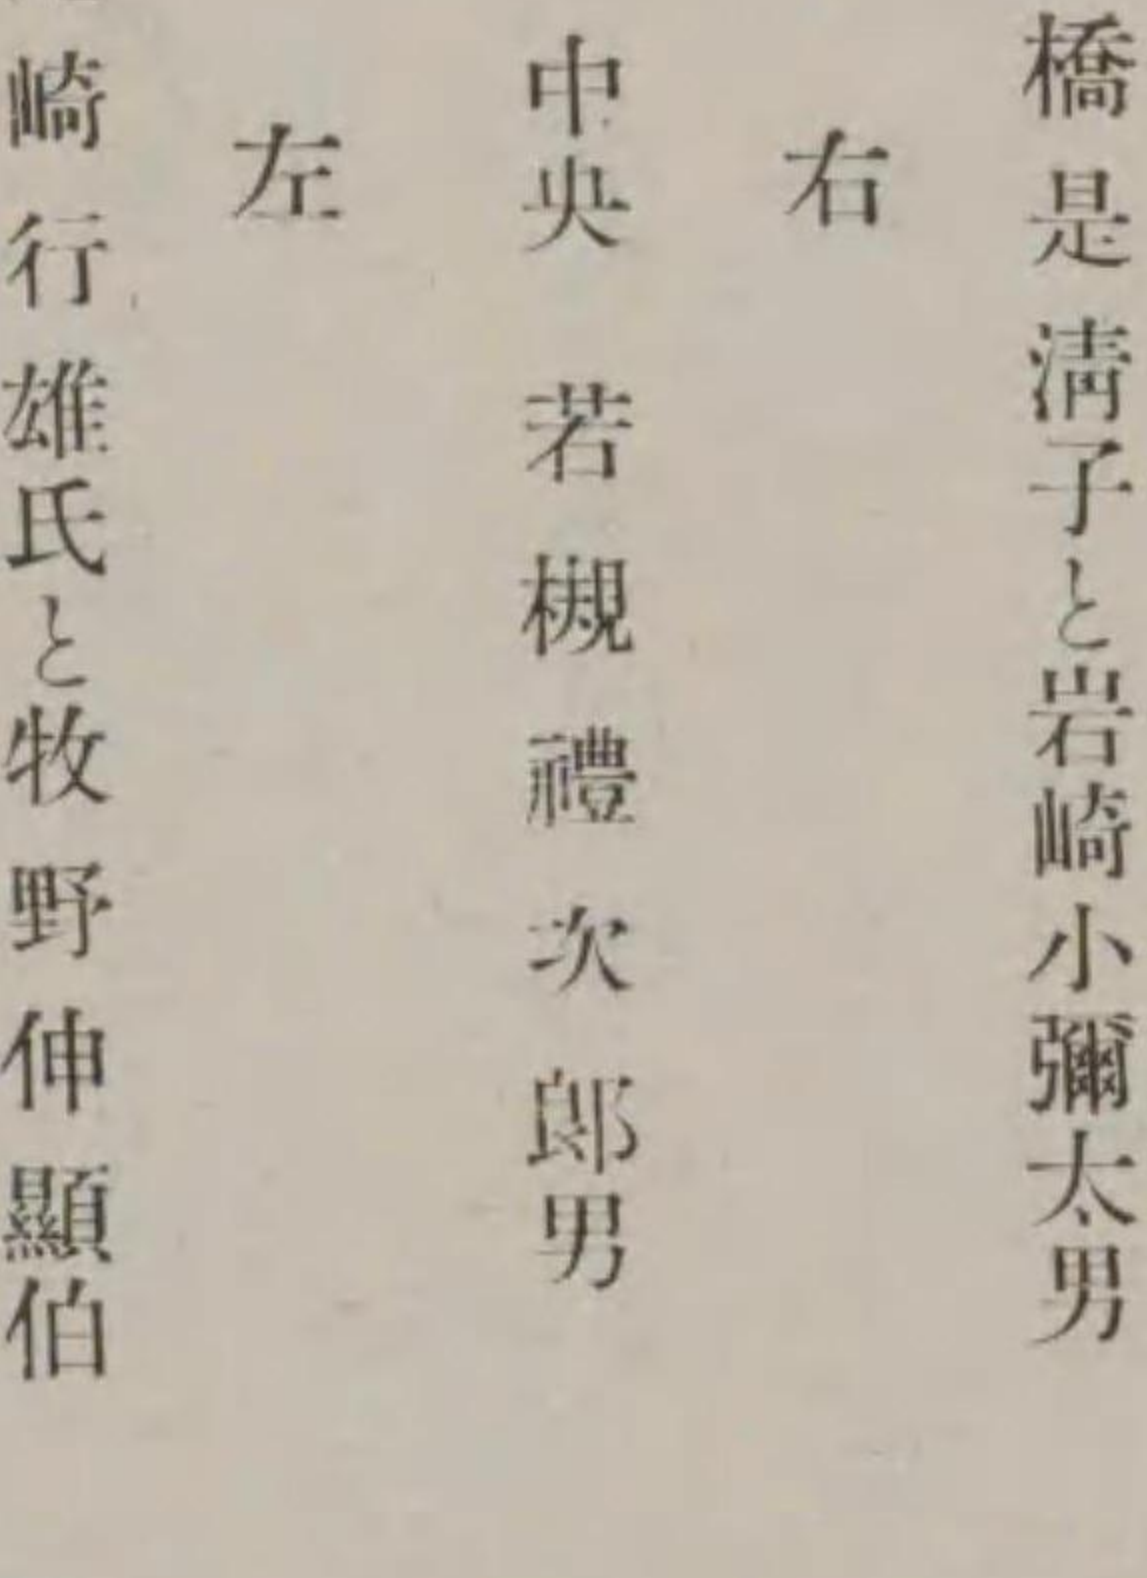 橋是淸子と岩崎小彌太男
右
中央 若槻禮次郎男
左
崎行雄氏と牧野伸顯伯